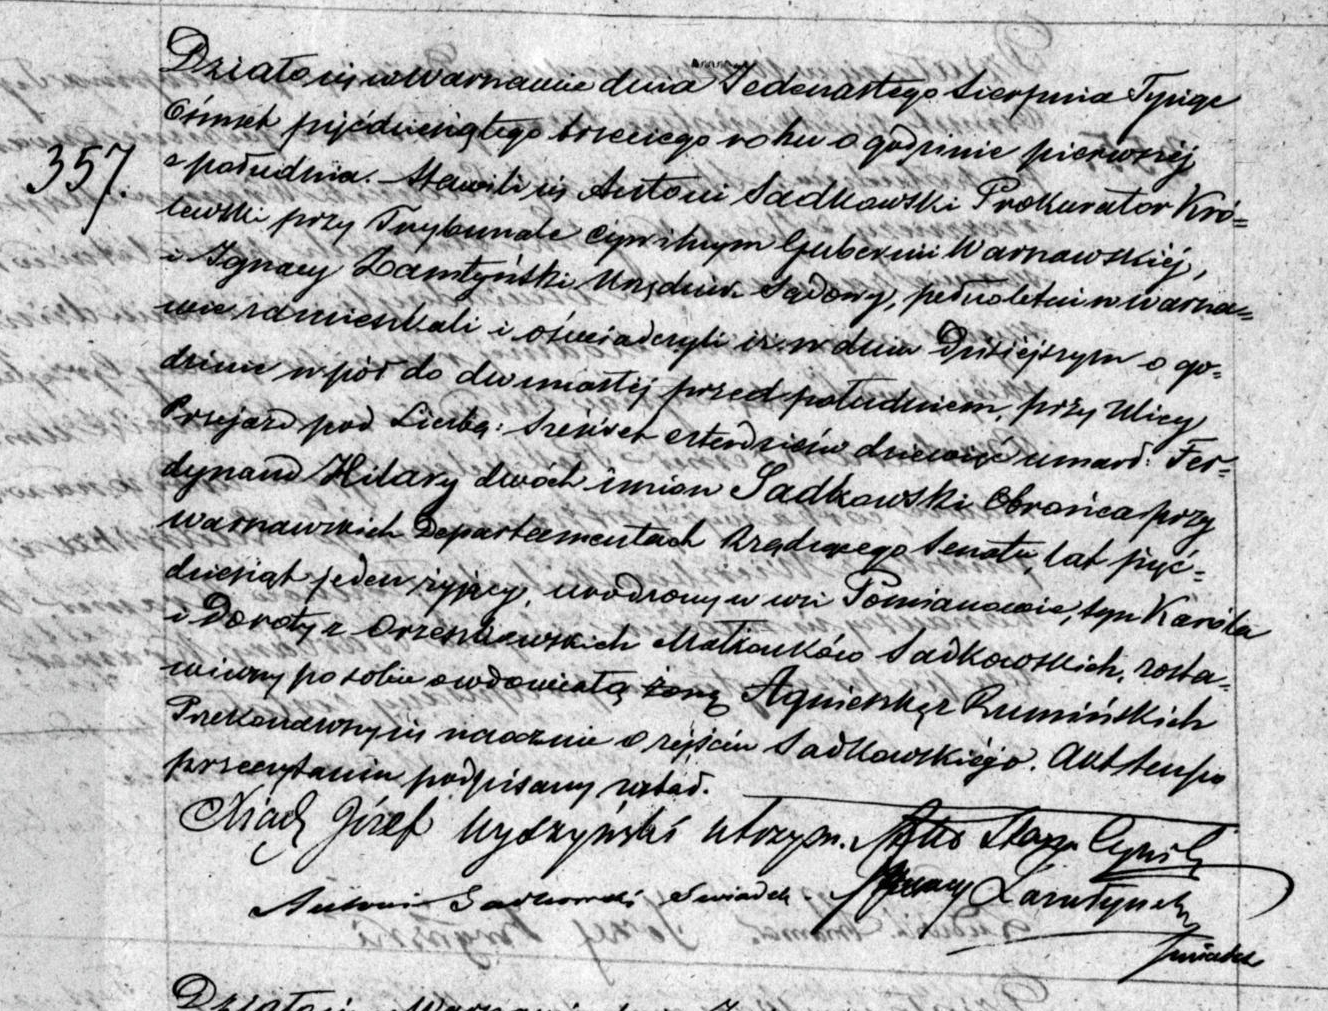 Działo się w Warszawie dnia Jedenastego Sierpnia Tysiąc
Ośmset pięćdziesiątego trzeciego roku o godzinie pierwszéj
z południa. Stawili się Antoni Sadkowski Prokurator Kró=
lewski przy Trybunale Cywilnym Gubernii Warszawskiéj,
i Ignacy Zamtyński Urzędnik Sądowy, pełnoletni w Warsza=
wie zamieszkali i oświadczyli iż w dniu Dzisiejszym o go=
dzinie wpół do dwunastéj przed południem, przy Ulicy
Przejazd pod Liczbą: Sześćset czterdzieści dziewięć umarł: Fer=
dynand Hilary dwóch imion Sadkowski Obrońca przy
Warszawskich Departamentach Rządzącego Senatu, lat pięć=
dziesiąt jeden żyjący, urodzony w wsi Pomianowie, syn Karóla
i Doroty z Orzeszkowskich Małżonków Sadkowskich, zosta=
wiwszy po sobie owdowiałą żonę Agnieszkę z Rumińskich
Przekonawszy się naocznie o zejściu Sadkowskiégo. Akt ten po
przeczytaniu podpisany został.
357.
Xiądz Józef Wyszyński Utrzym. Akta Stanu Cywil
Antoni Sadkowski Świadek. Ignacy Zamtyński
świadek
Działo się w Warszawie